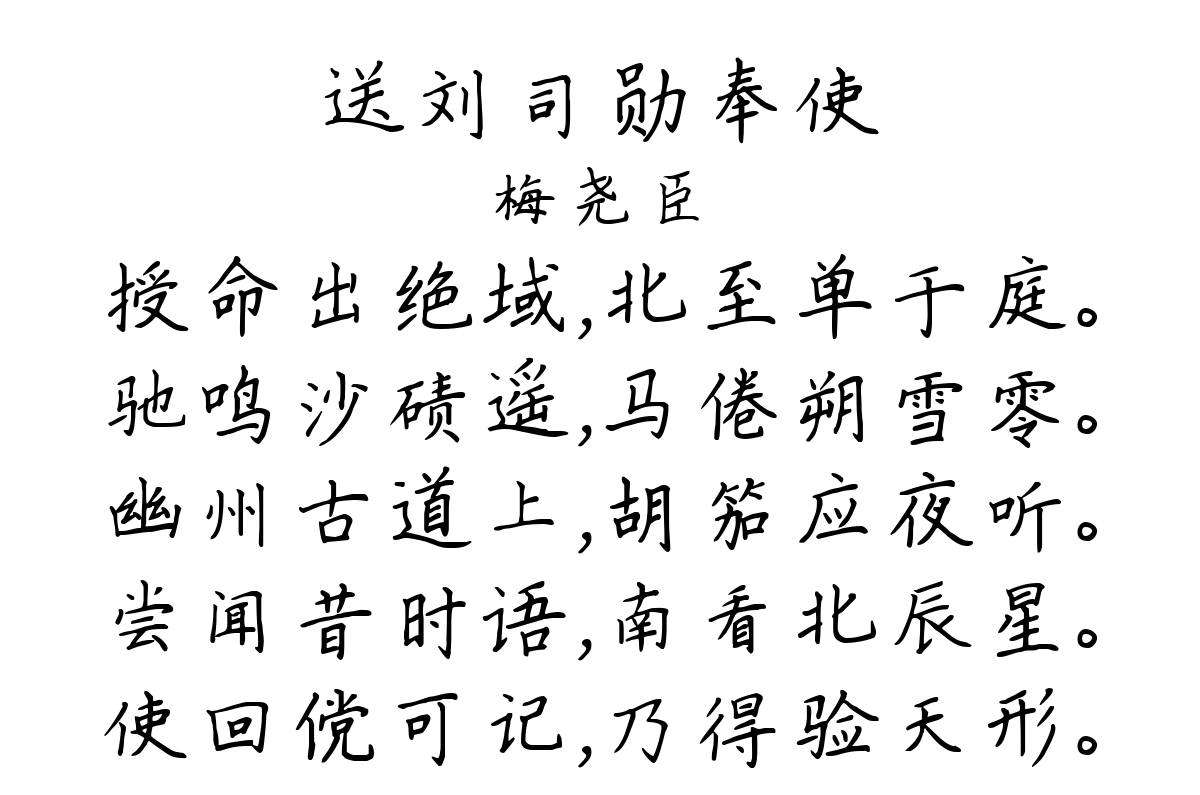 送刘司勋奉使
梅尧臣
授命出绝域,北至单于庭。
驰鸣沙碛遥,马倦朔雪零。
幽州古道上,胡笳应夜听。
尝闻昔时语,南看北辰星。
使回傥可记,乃得验天形。